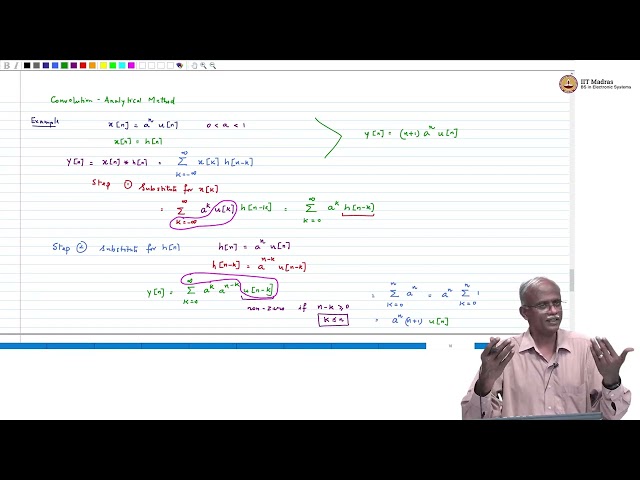 IIT Madras
BS in Electronic Systems
Convolution - Analytical Method
Example x[n] = aⁿ u[n] 0 < a < 1
x[n] = h[n]
y[n] = (n+1) aⁿ u[n]
y[n] = x[n] * h[n] = ∑_{k=-∞}^{∞} x[k] h[n-k]
Step ① Substitute for x[k]
= ∑_{k=-∞}^{∞} a^k u[k] h[n-k] = ∑_{k=0}^{∞} a^k h[n-k]
Step ② Substitute for h[n] h[n] = aⁿ u[n]
h[n-k] = a^{n-k} u[n-k]
y[n] = ∑_{k=0}^{∞} a^k a^{n-k} u[n-k] = ∑_{k=0}^{n} aⁿ = aⁿ ∑_{k=0}^{n} 1
non-zero if n-k ≥ 0
k ≤ n = aⁿ (n+1) u[n]